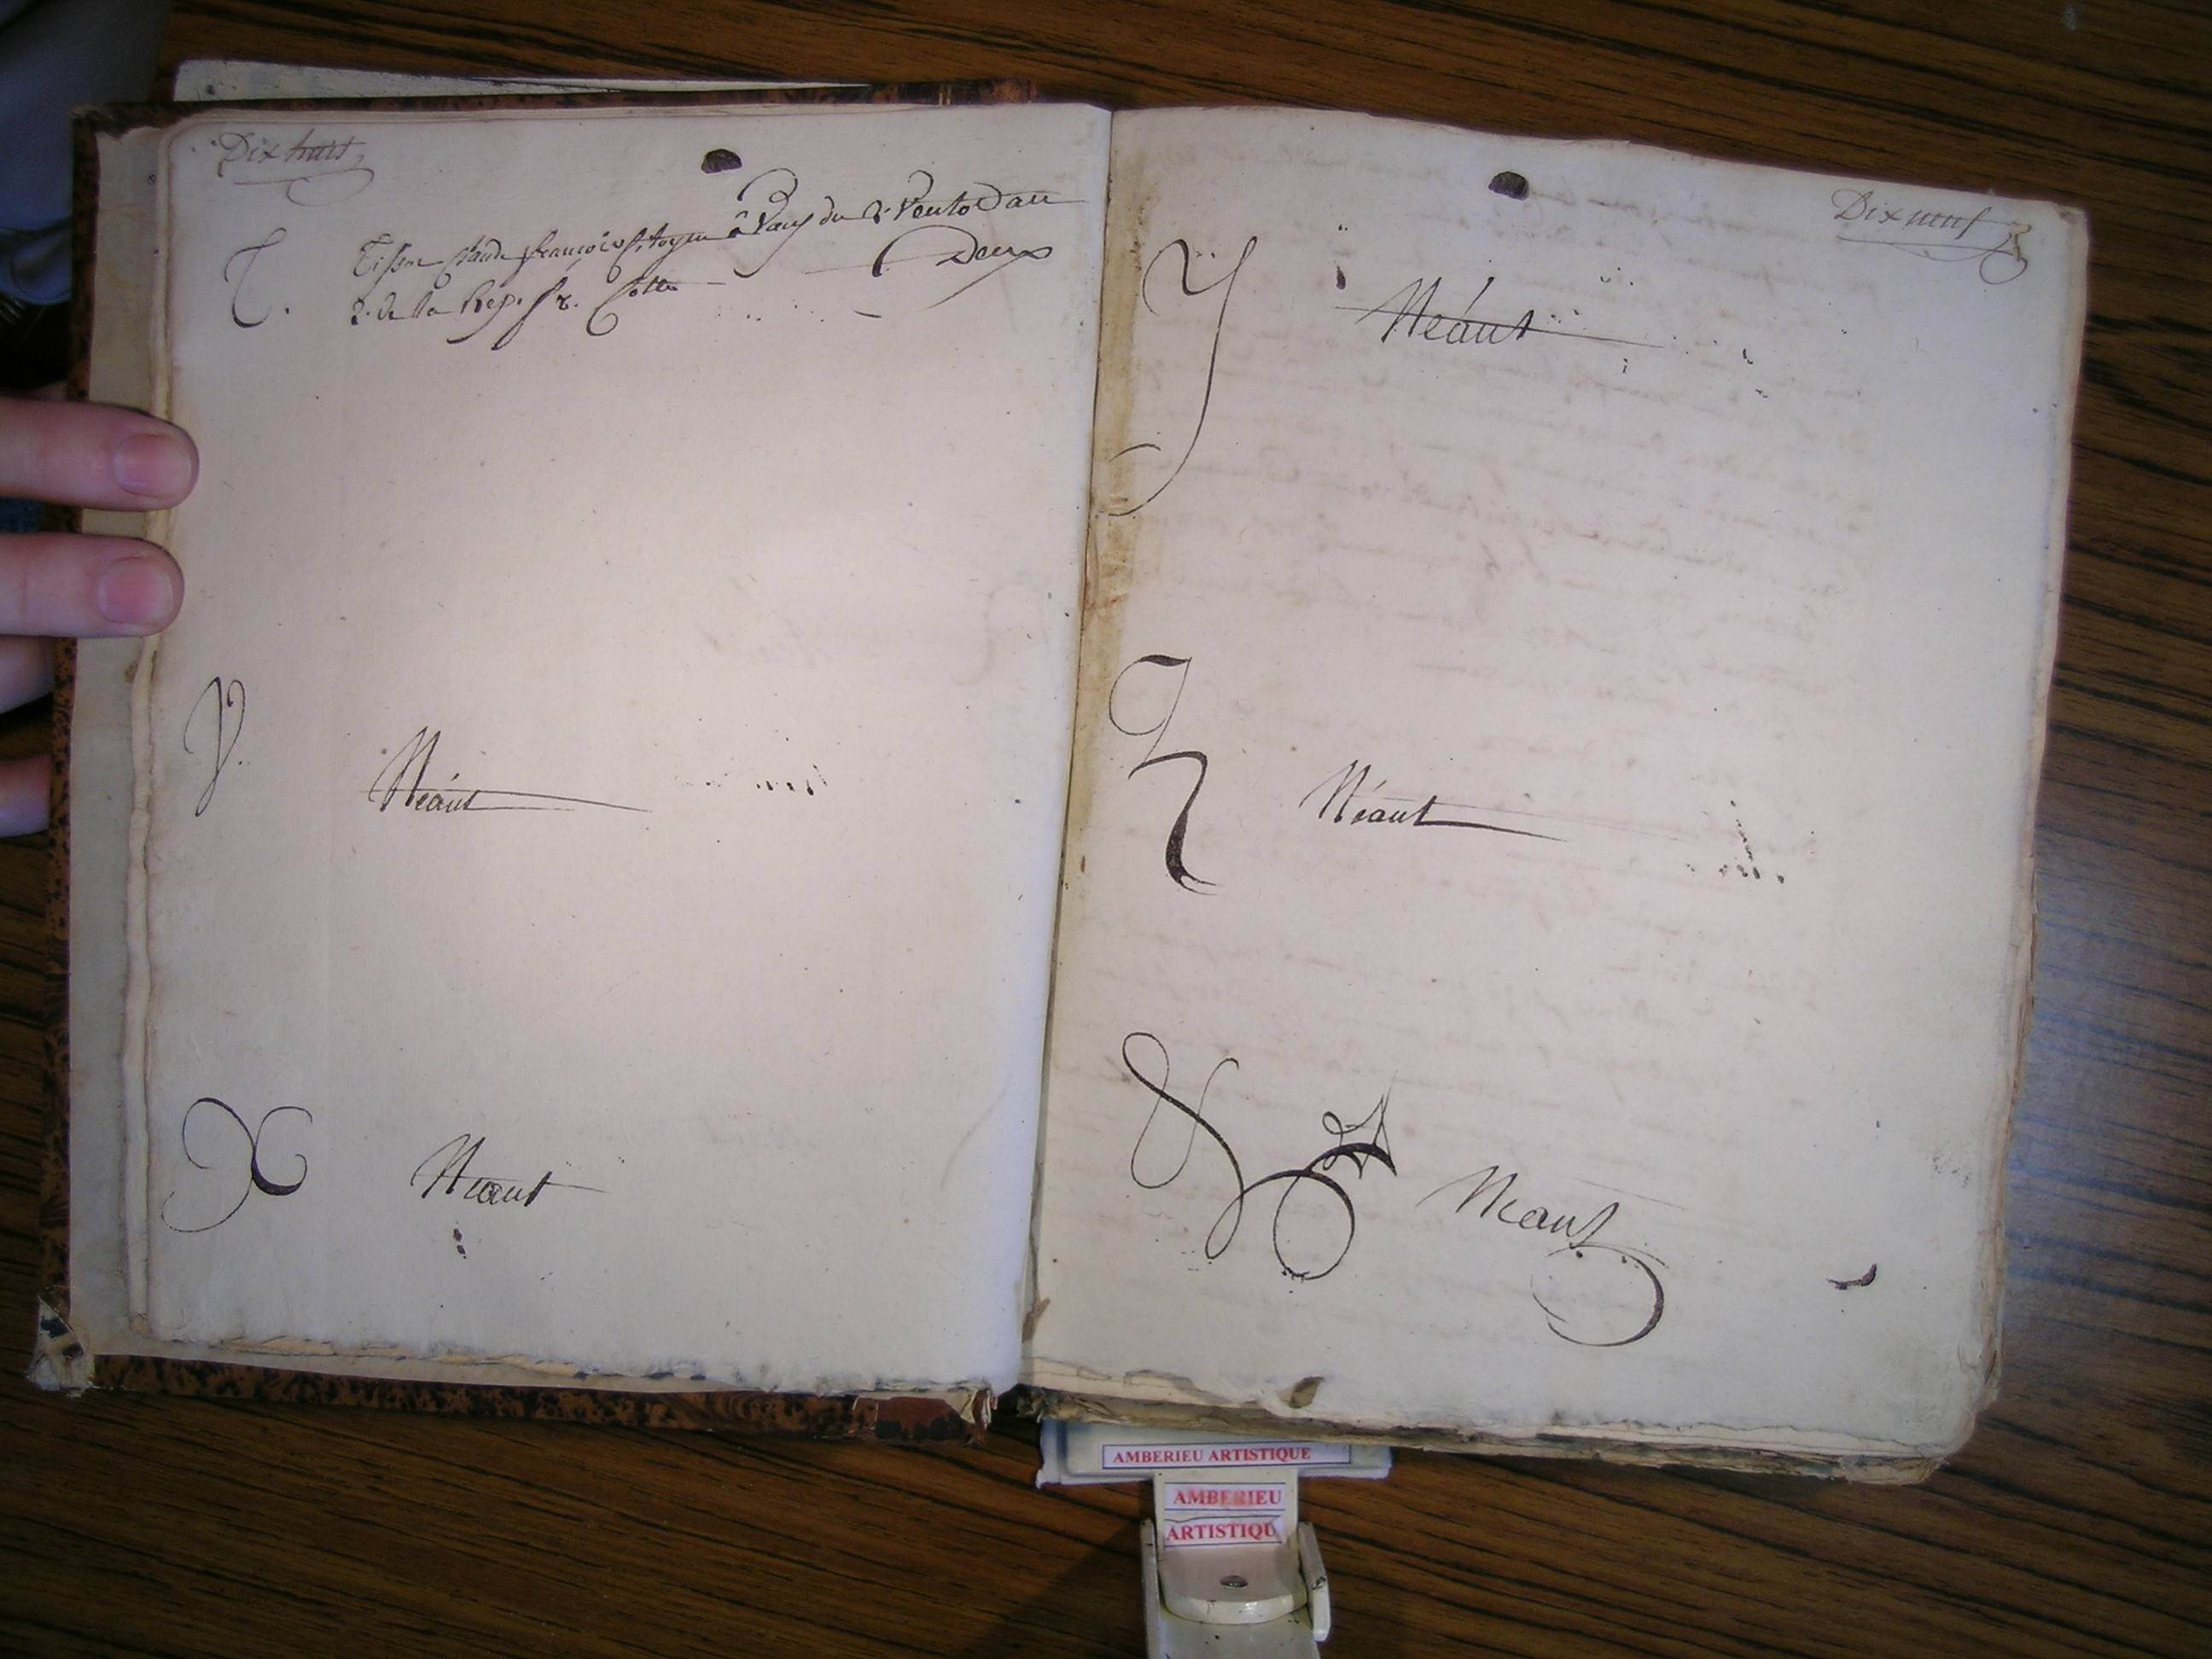 Dix huit
T. Tissot Claude françois Citoyen à Vaux du 2. Ventos Dan
2. de la Rép. fr. Cotte Deux
V. Néant
X Néant
Dix neuf
Y Néant
Z Néant
& Néant
AMBERIEU ARTISTIQUE
AMBERIEU
ARTISTIQU